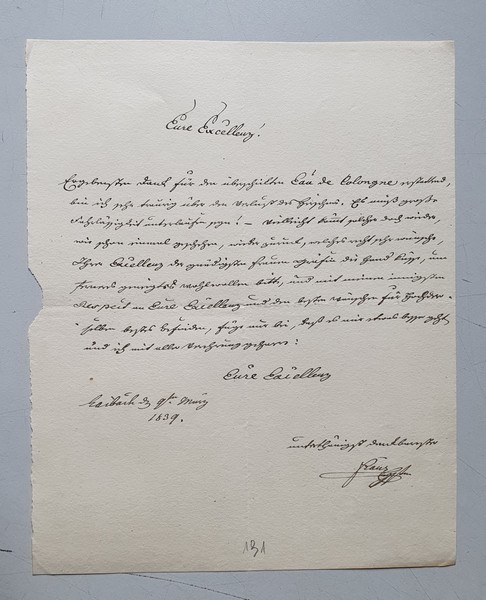 Eure Excellenz!
Ergebensten Dank für den überschikten Eau de Cologne erstattend,
bin ich sehr traurig über den Verlust des Geschenks. Es muß große
Fahrlässigkeit unterlaufen seyn! – vielleicht kömt solches doch wieder,
wie schon einmal geschehen, wieder zurück, welches recht sehr wünsche,
Ihrer Excellenz der gnädigsten Frau Gräfin die Hand küsse, um
ferneres geneigtes wohlwollen bitte, und mit meinem innigsten
Respect an Eure Excellenz und den besten wünschen für Hochder-
selben bestes Befinden, füge nur bei, daß es mir etwas besser geht,
und ich mit aller Verehrung geharre:
Eure Excellenz
Laibach d 9t. März
1839.
unterthänigst dankbarster
Franz
131